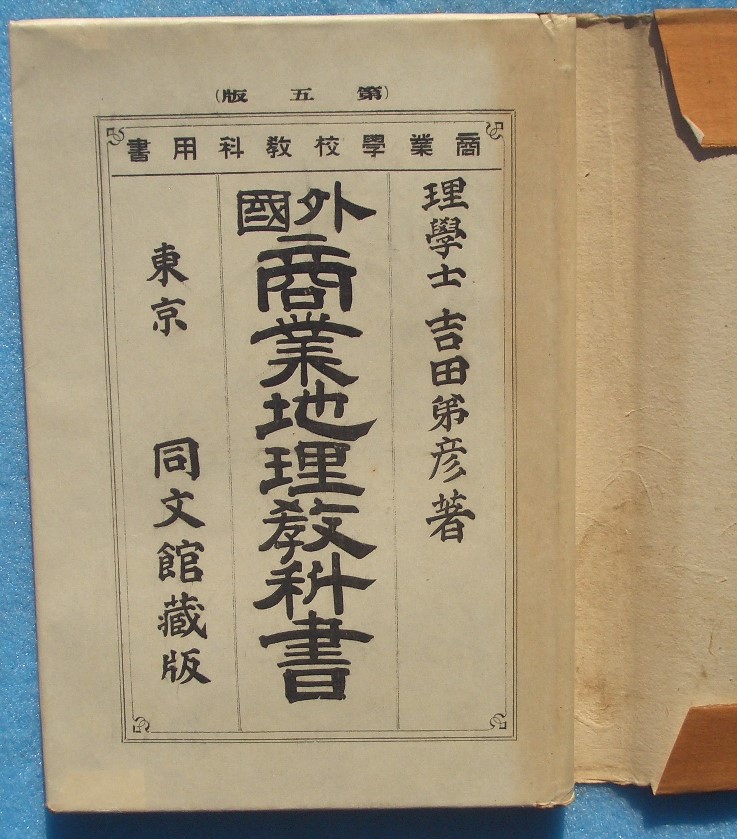 (第五版)
商業學校敎科用書
理學士 吉田弟彦著
外國商業地理敎科書
東京 同文館藏版